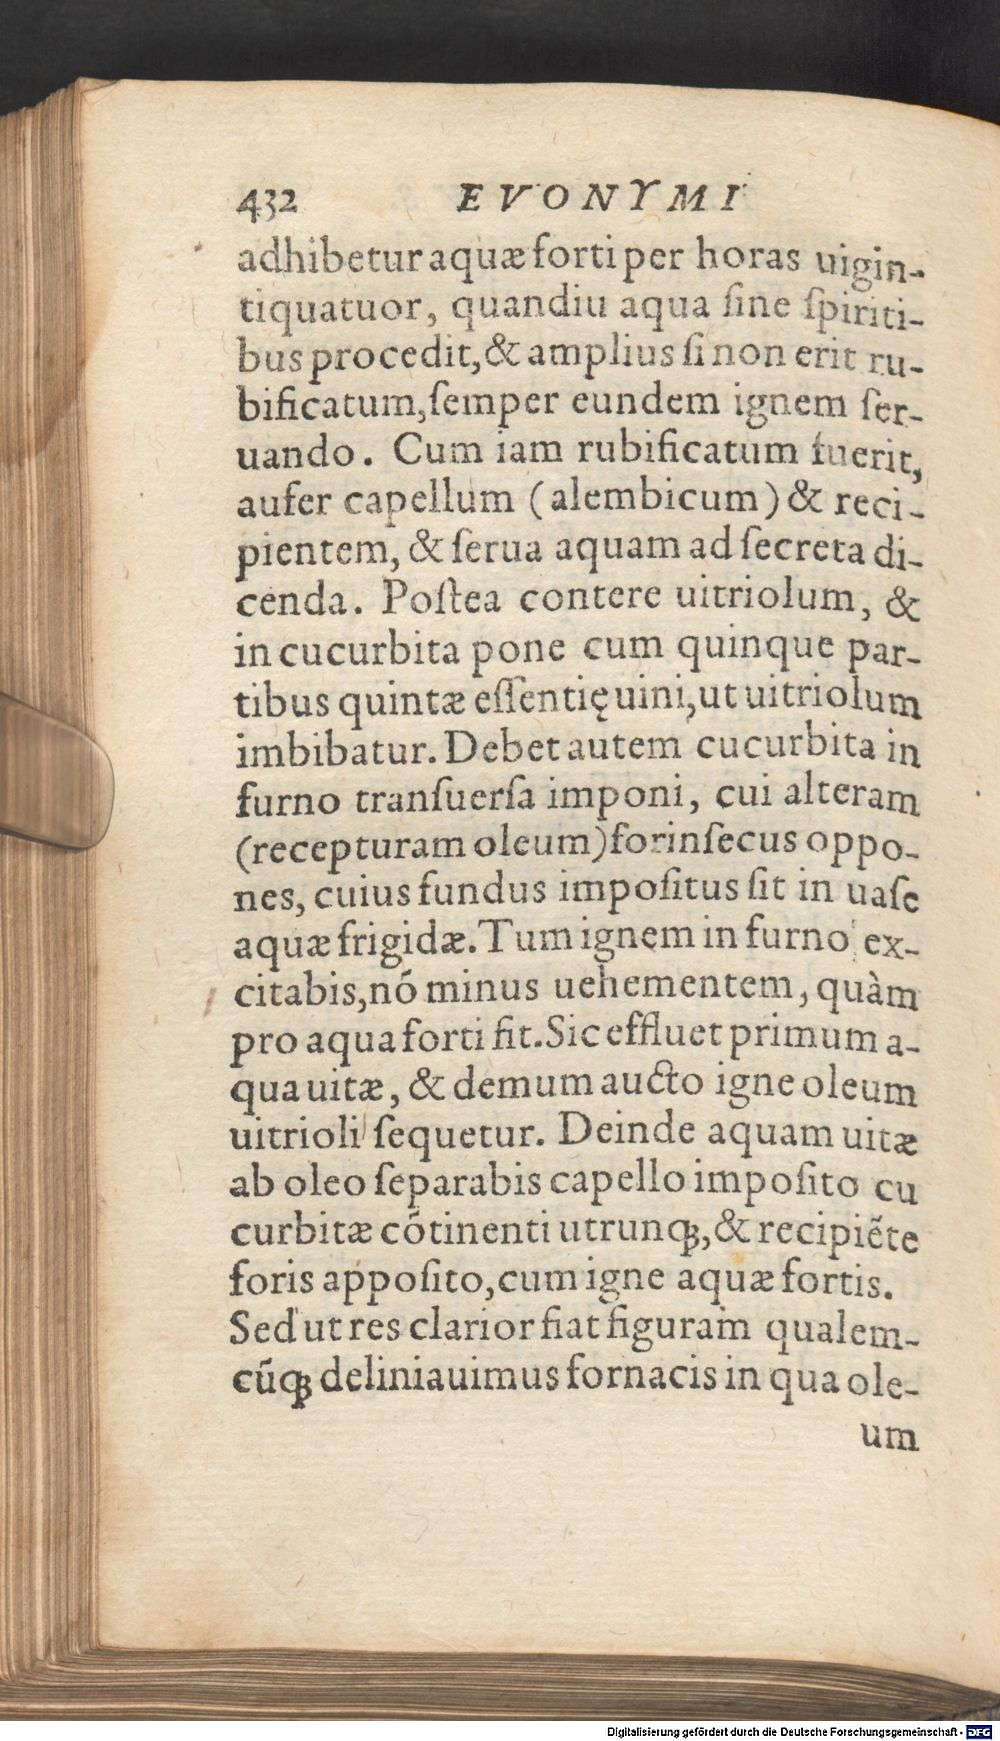 432 EVONYMI
adhibetur aquæ forti per horas uigin-
tiquatuor, quandiu aqua ſine ſpiriti-
bus procedit, & amplius ſi non erit ru-
bificatum, ſemper eundem ignem ſer-
uando. Cum iam rubificatum fuerit,
aufer capellum (alembicum) & reci-
pientem, & ſerua aquam ad ſecreta di-
cenda. Poſtea contere uitriolum, &
in cucurbita pone cum quinque par-
tibus quintæ eſſentię uini, ut uitriolum
imbibatur. Debet autem cucurbita in
furno tranſuerſa imponi, cui alteram
(recepturam oleum) forinſecus oppo-
nes, cuius fundus impoſitus ſit in uaſe
aquæ frigidæ. Tum ignem in furno ex-
citabis, nõ minus uehementem, quàm
pro aqua forti fit. Sic effluet primum a-
qua uitæ, & demum aucto igne oleum
uitrioli ſequetur. Deinde aquam uitæ
ab oleo ſeparabis capello impoſito cu
curbitæ cõtinenti utrunqꝫ, & recipiẽte
foris appoſito, cum igne aquæ fortis.
Sed ut res clarior fiat figuram qualem-
cũqꝫ deliniauimus fornacis in qua ole-
um
Digitalisierung gefördert durch die Deutsche Forschungsgemeinschaft - DFG